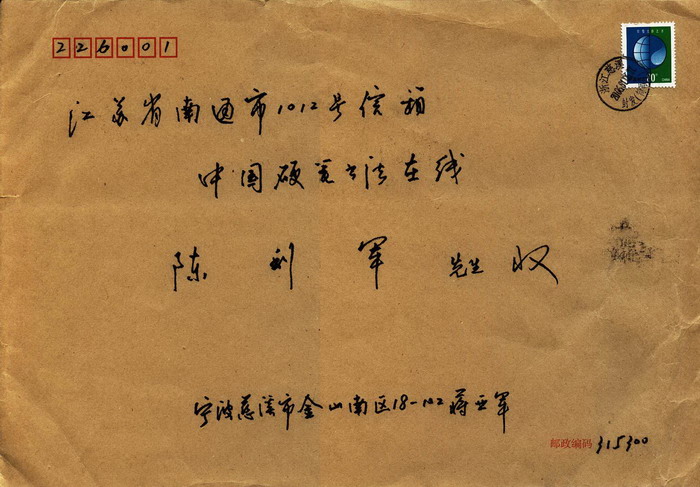 226001
江苏省南通市1012号信箱
中国硬笔书法在线
陈利军 先生 收
宁波慈溪市金山南区18-102 蒋亚军
邮政编码 315300
浙江慈溪